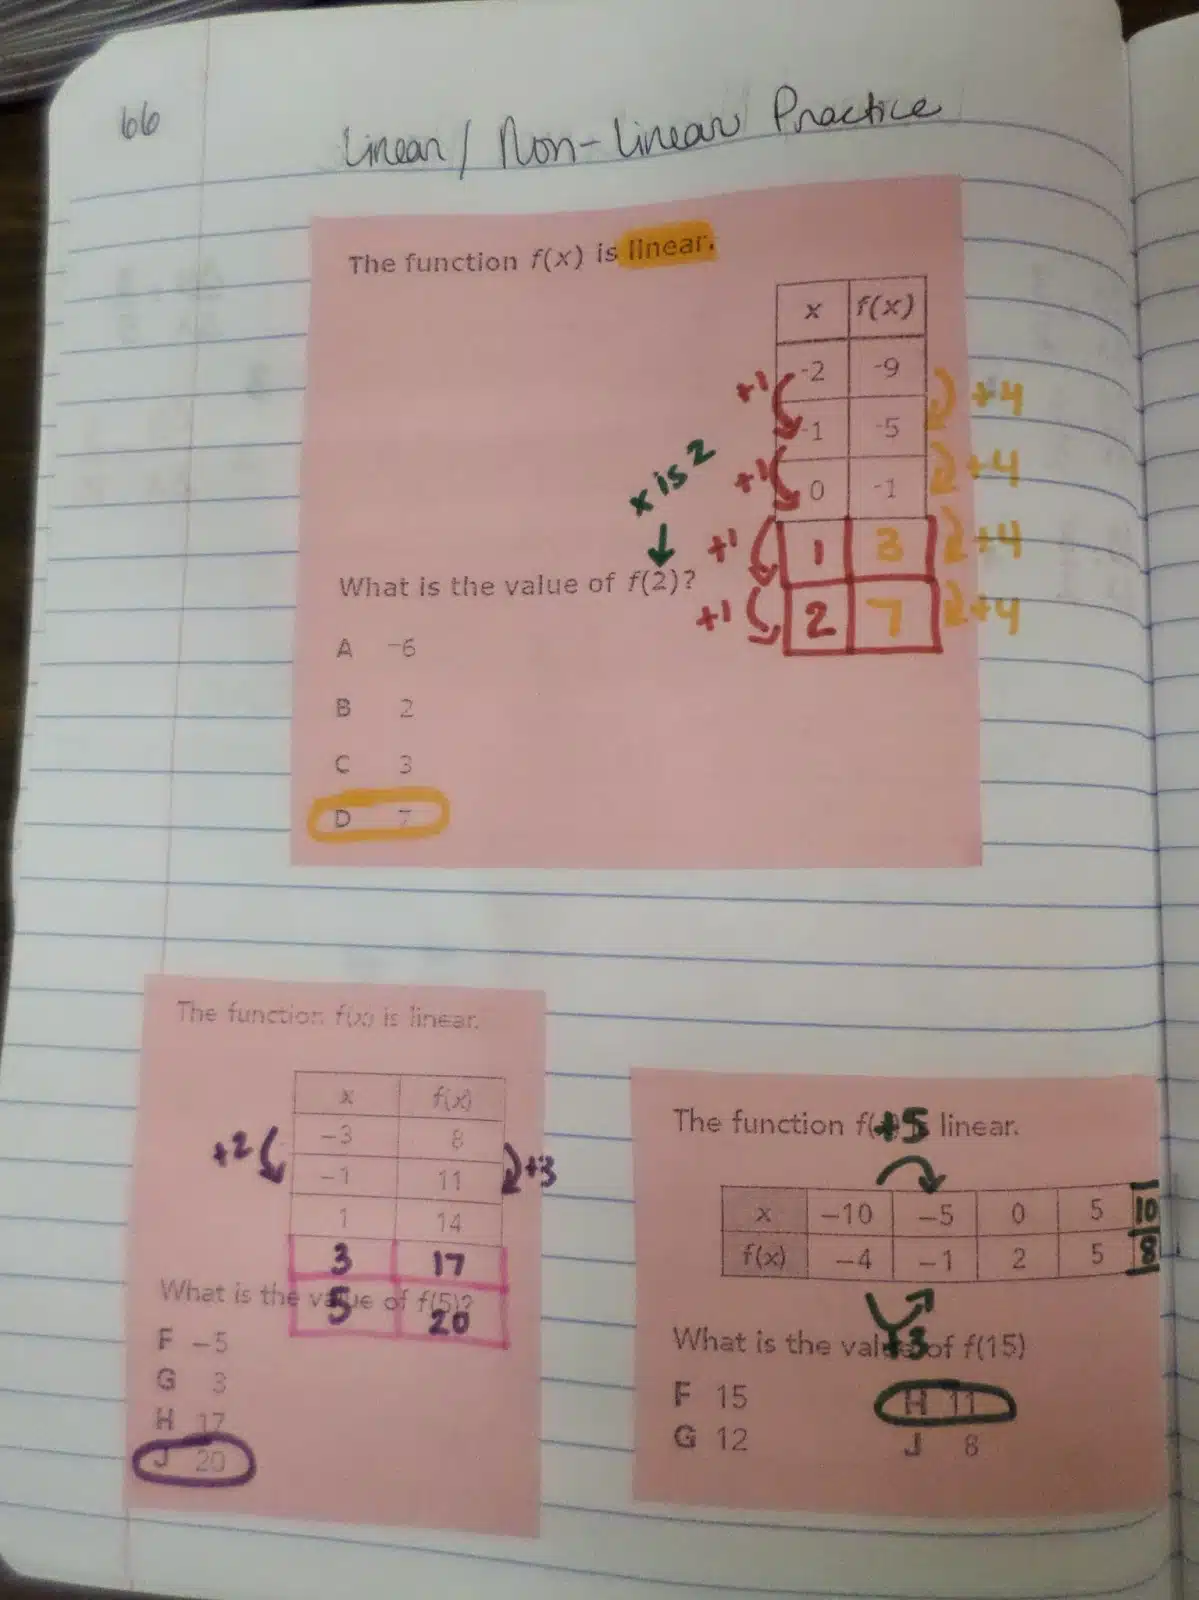 66
Linear / Non-Linear Practice
The function f(x) is linear.
x f(x)
-2 -9
-1 -5
0 -1
1 3
2 7
+1 +4
+1 +4
+1 +4
+1 +4
x is 2
What is the value of f(2)?
A -6
B 2
C 3
D 7
The function f(x) is linear.
x f(x)
-3 8
-1 11
1 14
3 17
5 20
+2 +3
What is the value of f(5)?
F -5
G 3
H 17
J 20
The function f( +5 linear.
x -10 -5 0 5 10
f(x) -4 -1 2 5 8
+3
What is the value of f(15)
F 15
G 12
H 11
J 8